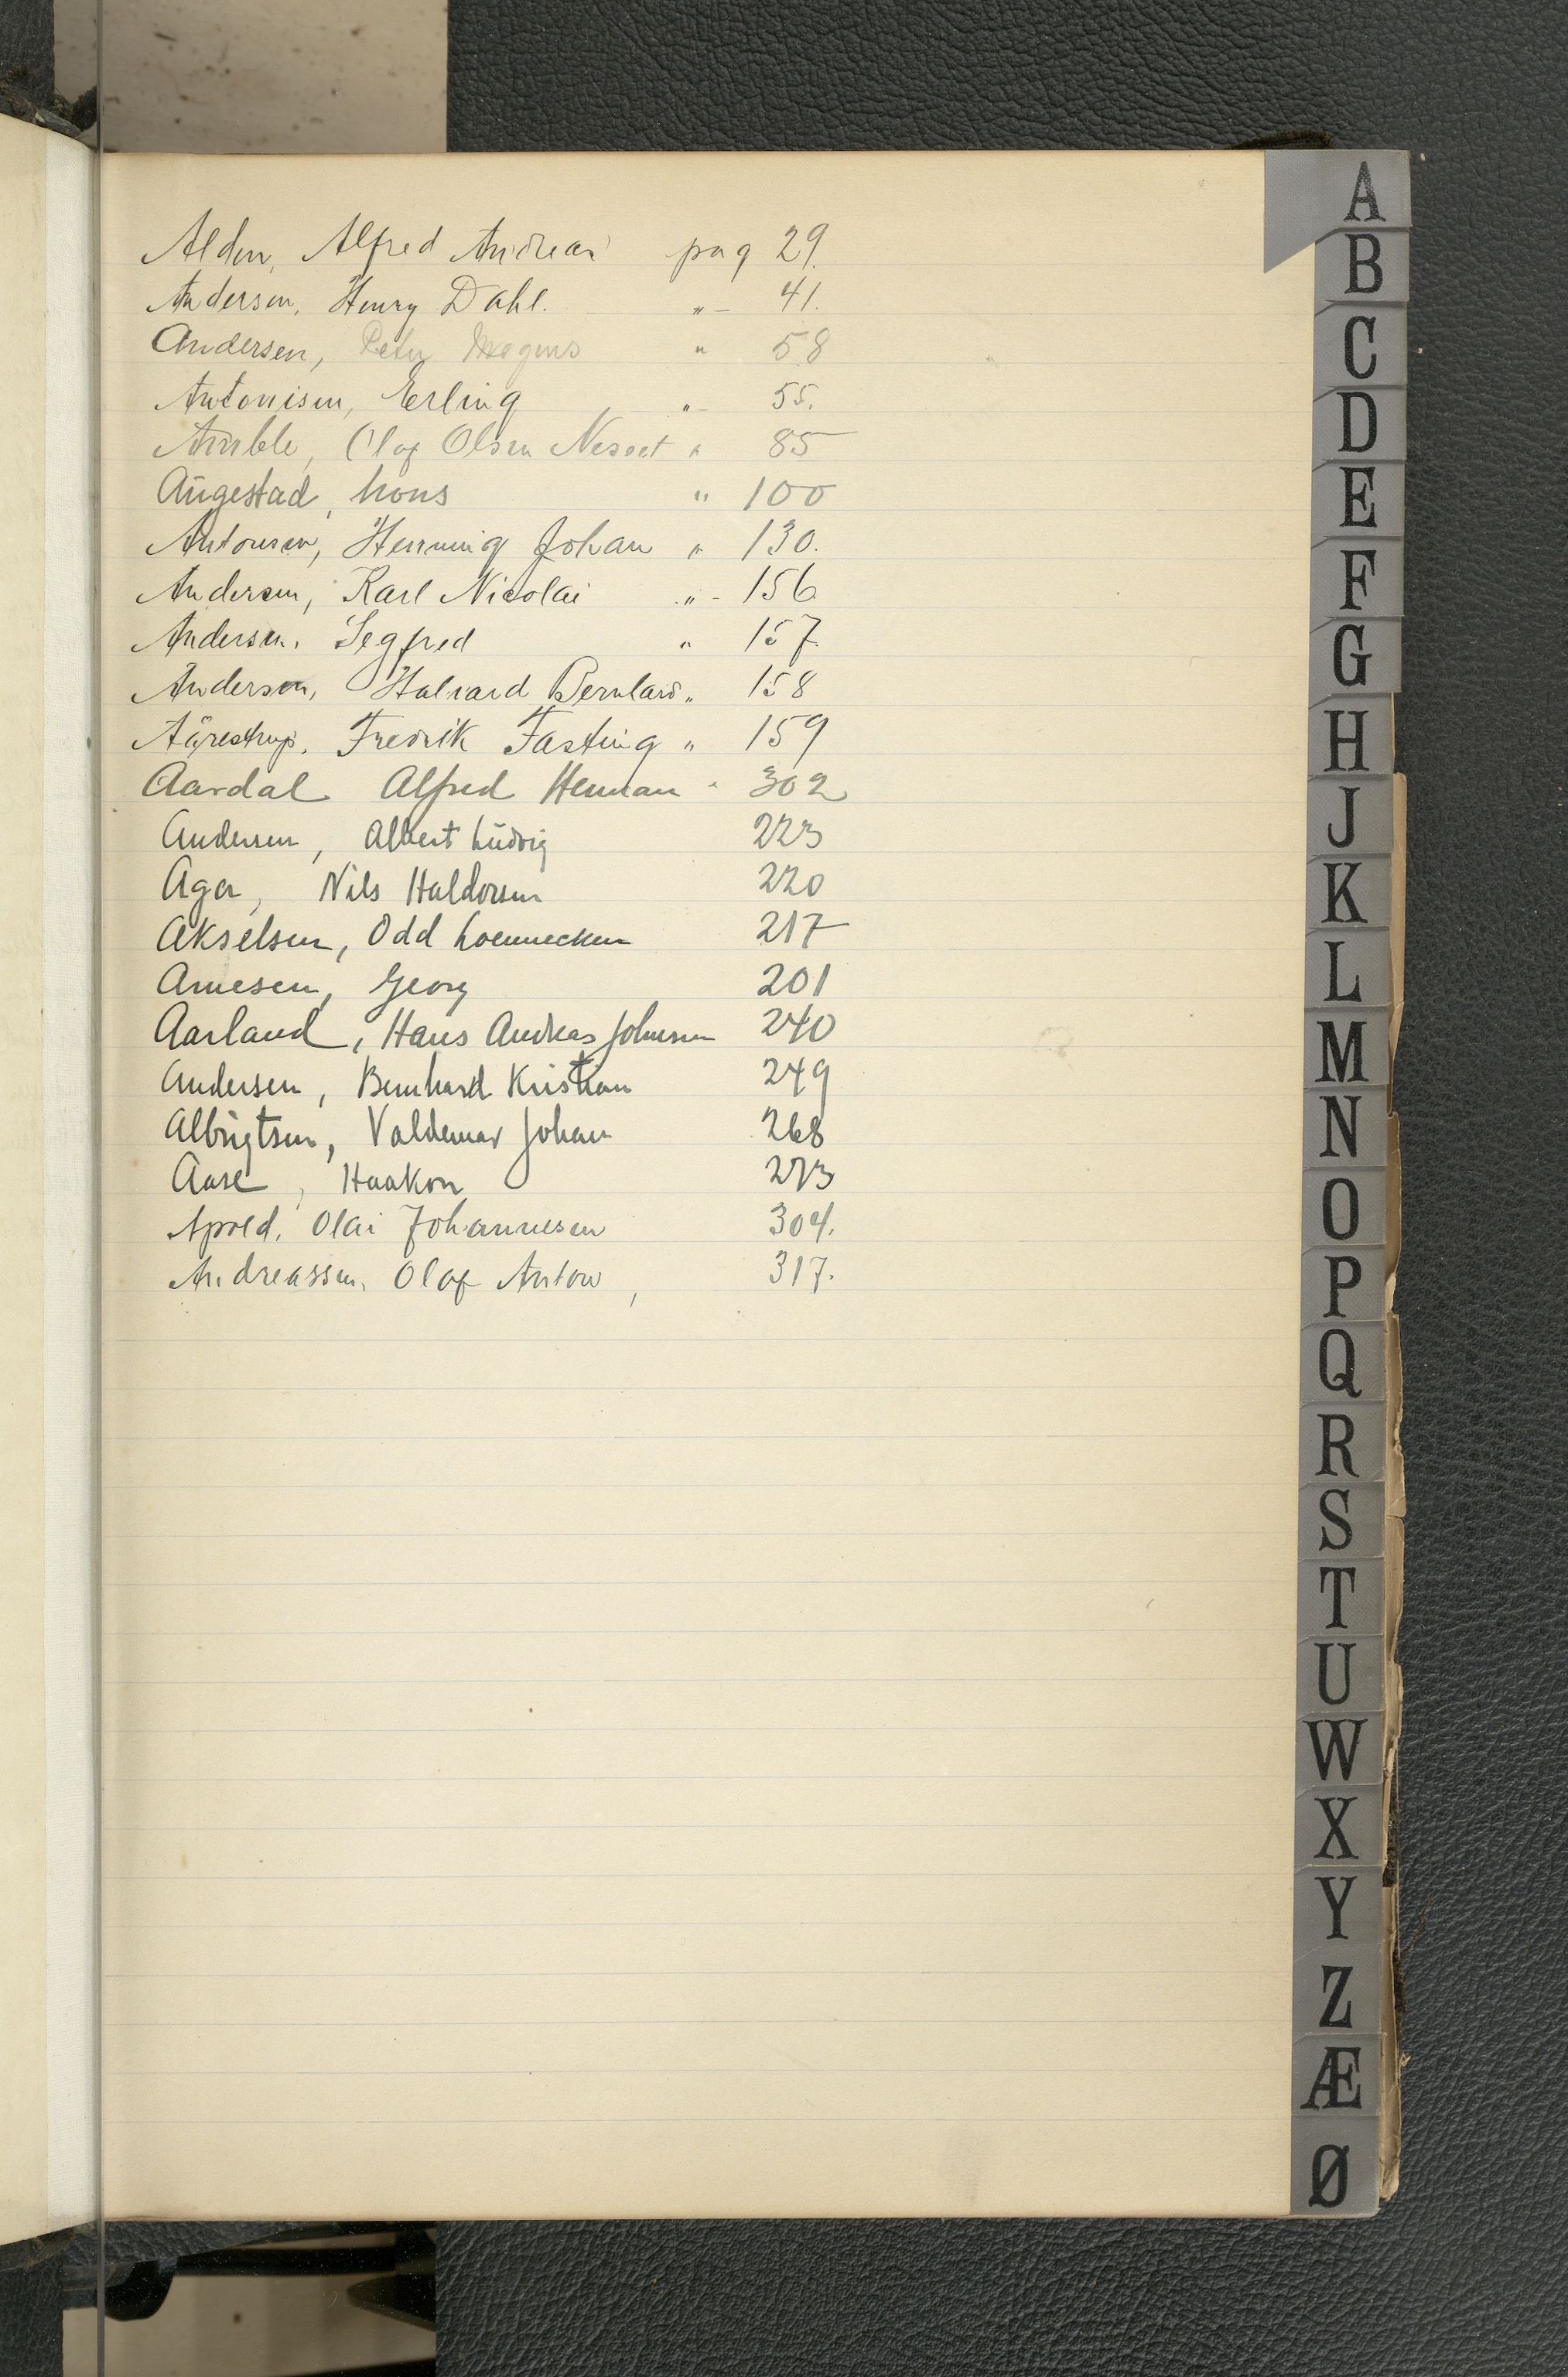 Alden, Alfred Andreas pag 29.
Andersen, Henry Dahl. " - 41.
Andersen, Peter Mogens " 58
Antonisen, Erling " - 55.
Amble, Olaf Olsen Neset " 85
Augestad, Mons " 100
Antonsen, Henning Johan " 130.
Andersen, Karl Nicolai " - 156
Andersen, Segfred " 157.
Andersen, Halvard Bernhard " 158
Aagrestrup, Fredrik Fasting " 159
Aardal Alfred Herman " 302
Andersen, Albert Ludvig 223
Aga, Nils Haldorsen 220
Akselsen, Odd Loennecken 217
Arnesen, Georg 201
Aarland, Hans Andreas Johnsen 240
Andersen, Bernhard Kristian 249
Albrigtsen, Valdemar Johan 268
Aase, Haakon 273
Apold, Olai Johannesen 304.
Andreassen, Olaf Anton, 317.
A
B
C
D
E
F
G
H
J
K
L
M
N
O
P
Q
R
S
T
U
W
X
Y
Z
Æ
Ø